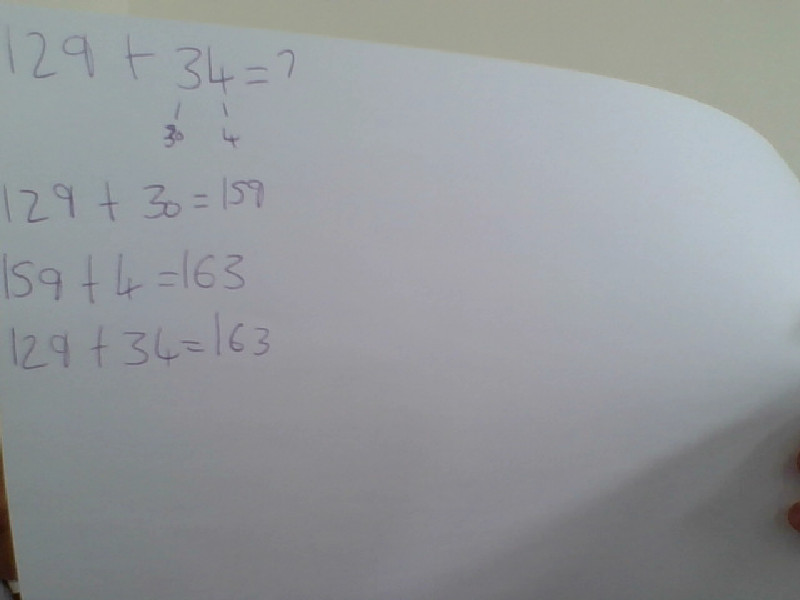 129 + 34 = ?
30 4
129 + 30 = 159
159 + 4 = 163
129 + 34 = 163